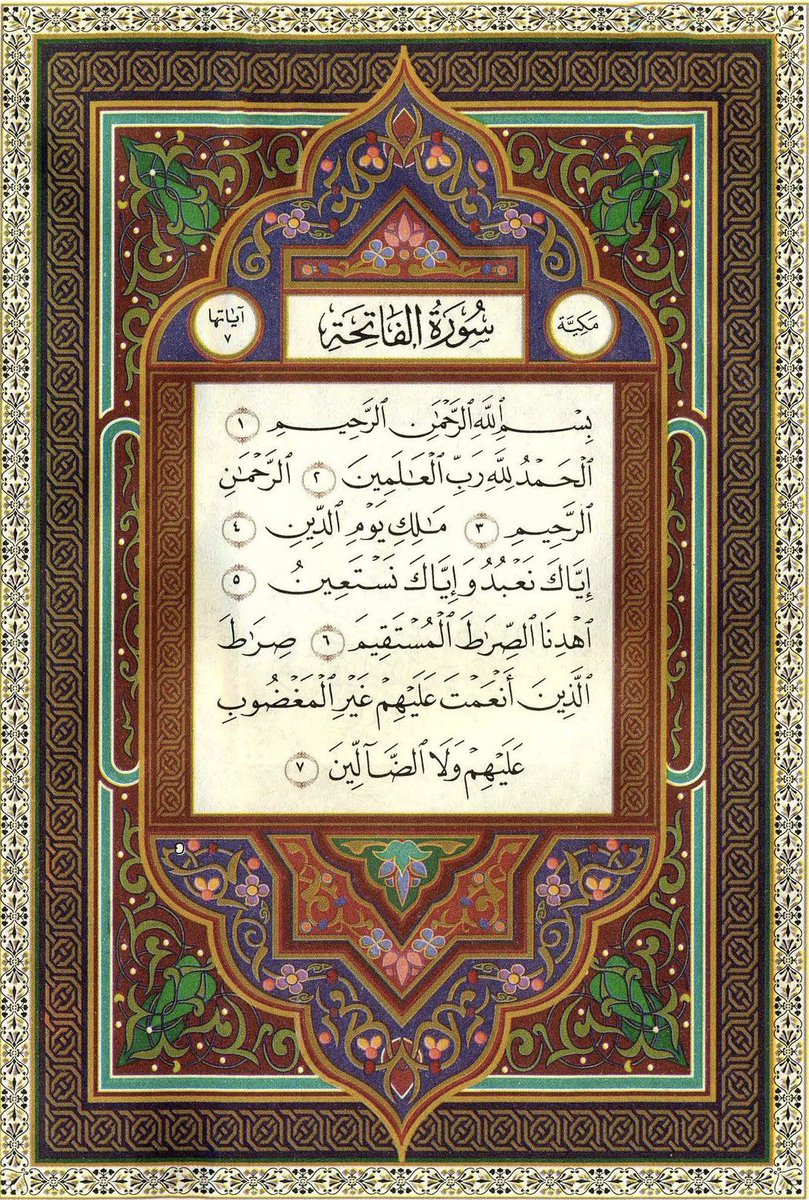 سُورَةُ الفَاتِحَةِ
مَكِيَّة
آيَاتها
٧
بِسْمِ ٱللَّهِ ٱلرَّحْمَٰنِ ٱلرَّحِيمِ ١
ٱلْحَمْدُ لِلَّهِ رَبِّ ٱلْعَٰلَمِينَ ٢ ٱلرَّحْمَٰنِ
ٱلرَّحِيمِ ٣ مَٰلِكِ يَوْمِ ٱلدِّينِ ٤
إِيَّاكَ نَعْبُدُ وَإِيَّاكَ نَسْتَعِينُ ٥
ٱهْدِنَا ٱلصِّرَٰطَ ٱلْمُسْتَقِيمَ ٦ صِرَٰطَ
ٱلَّذِينَ أَنْعَمْتَ عَلَيْهِمْ غَيْرِ ٱلْمَغْضُوبِ
عَلَيْهِمْ وَلَا ٱلضَّآلِّينَ ٧